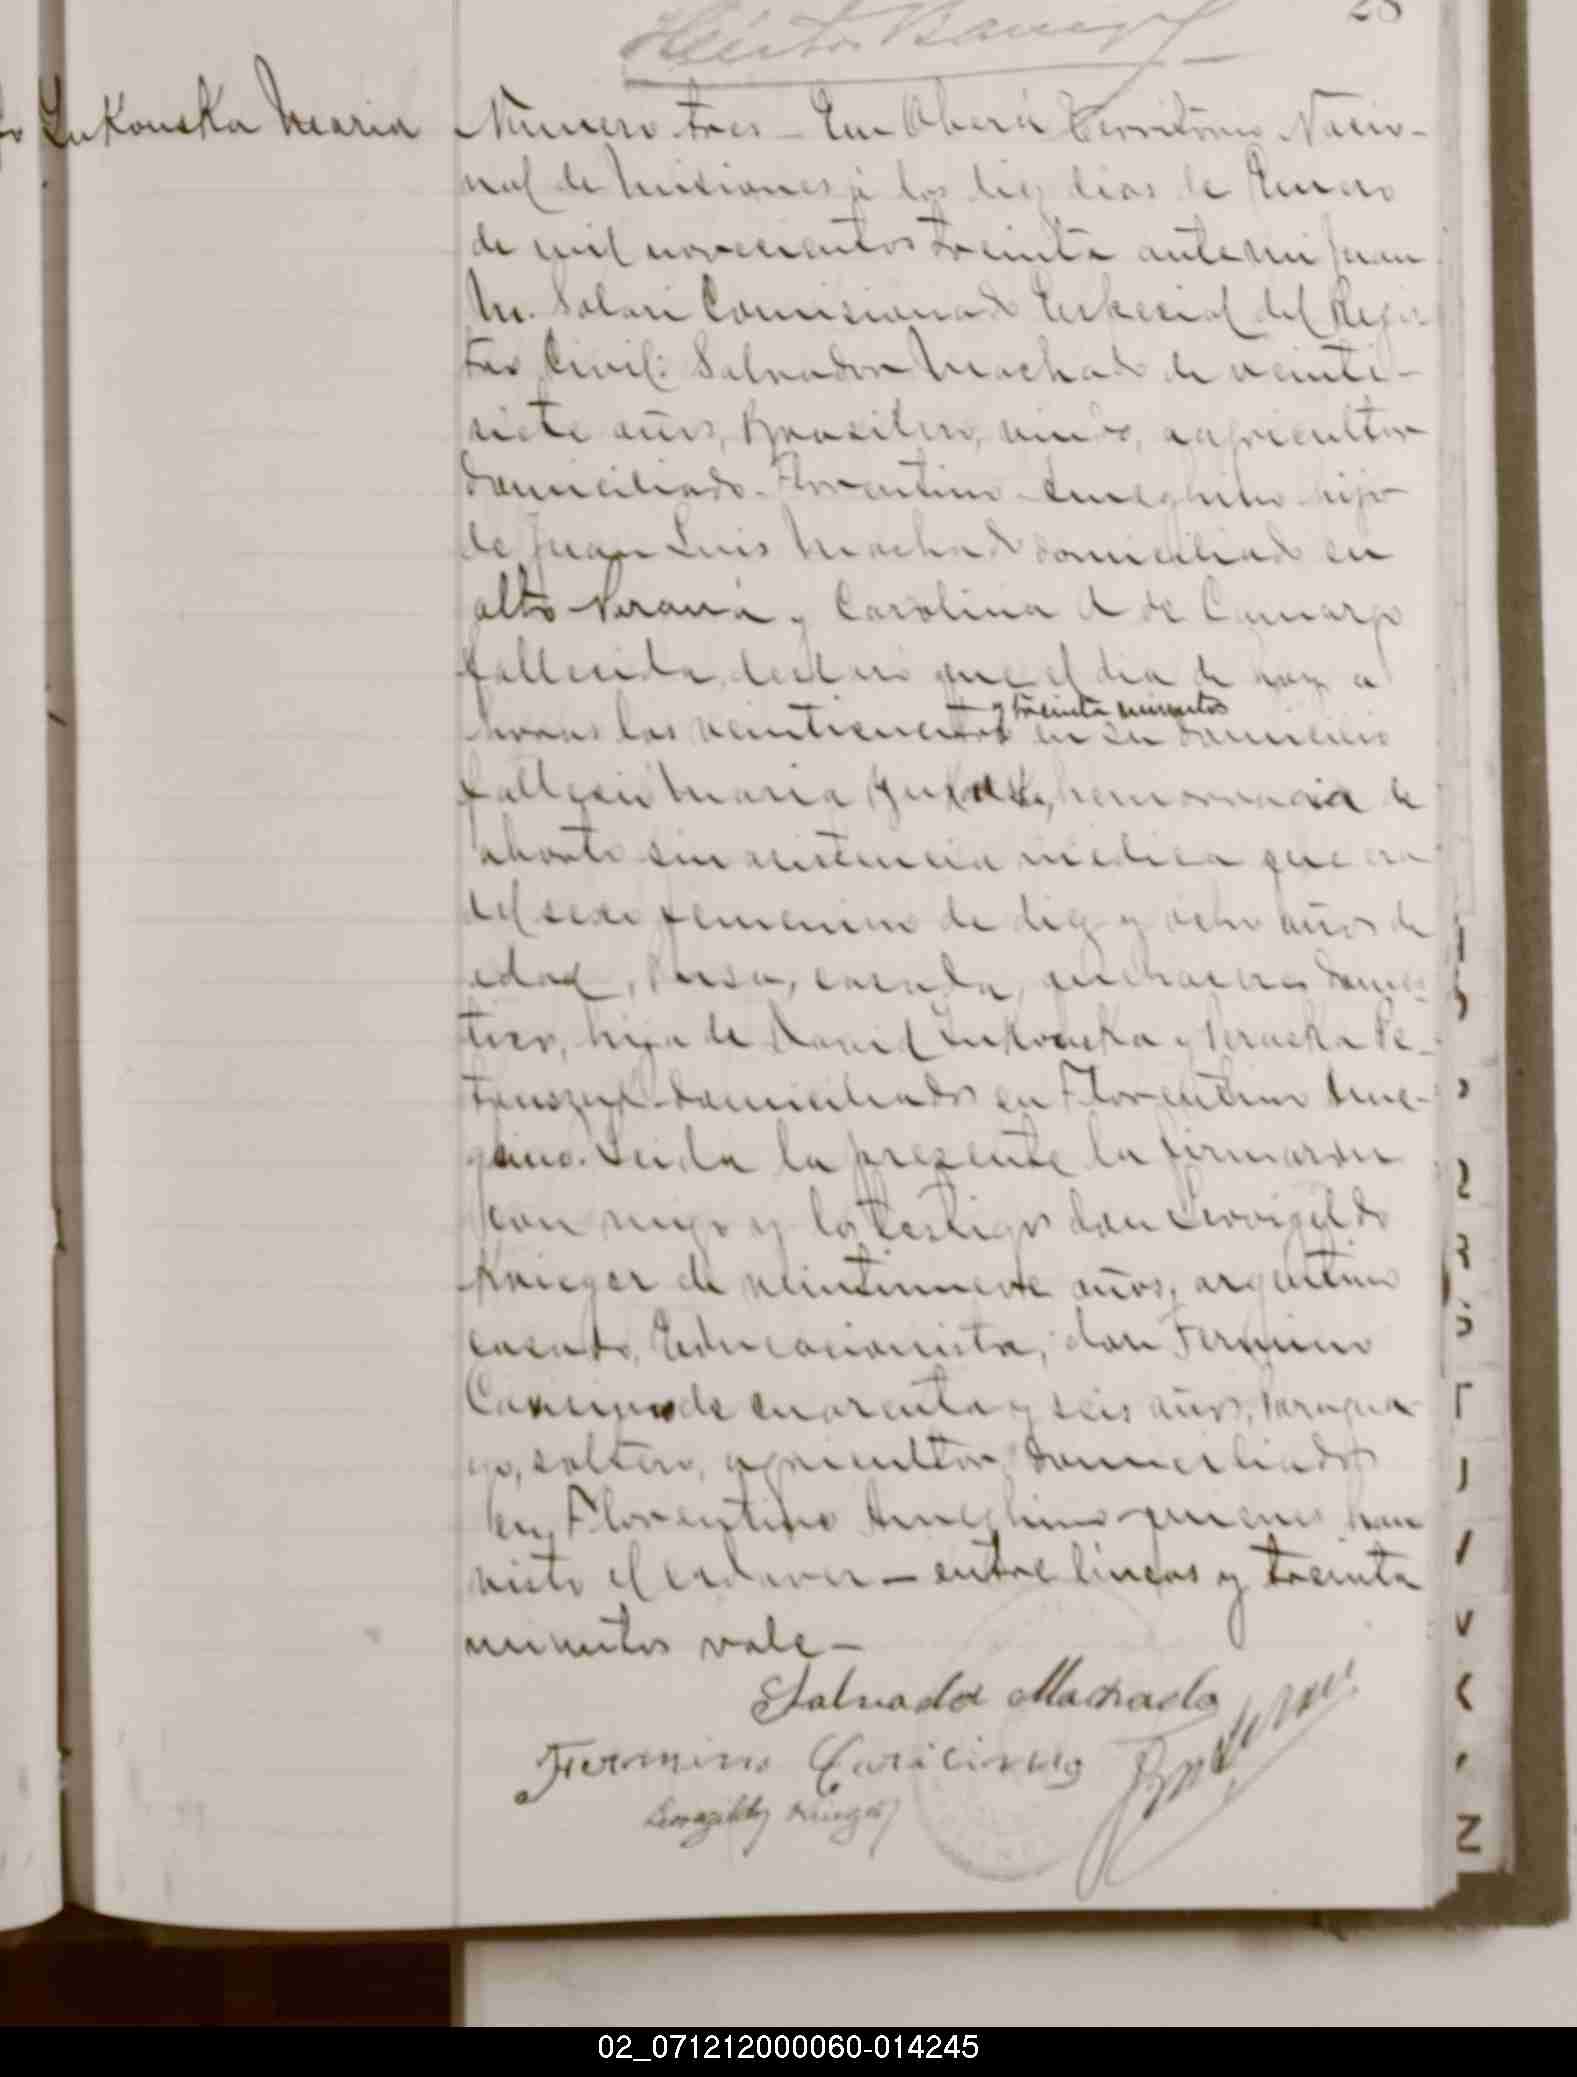 28
Lukouska Maria
Número tres - En Oberá Territorio Nacio-
nal de Misiones á los diez dias de Enero
de mil novecientos treinta ante mi Juan
M. Solari Comisionado Especial del Regis-
tro Civil: Salvador Machado de veinti-
siete años, Brasilero, viudo, agricultor
domiciliado Florentino Ameghino hijo
de Juan Luis Machado domiciliado en
alto Paraná y Carolina A de Camargo
fallecida, declaró que el dia de hoy a
y treinta minutos
horas las en su domicilio
falleció Maria hemorracia de
aborto sin asistencia médica que era
del sexo femenino de diez y ocho años de
edad, Rusa, casada, quehaceres domes-
tico, hija de David Lukouska y Pe-
domiciliados en Florentino Ame-
ghino. Leida la presente la firmaron
con migo y los testigos don Leovigildo
Krieger de veintinueve años, argentino
casado, Educacionista, don Fermino
de cuarenta y seis años, Paragua-
yo, soltero, agricultor domiciliados
en Florentino Ameghino quienes han
visto el cadaver - entre líneas y treinta
minutos vale -
Salvador Machado
Fermino
Leovigildo Krieger
02_071212000060-014245